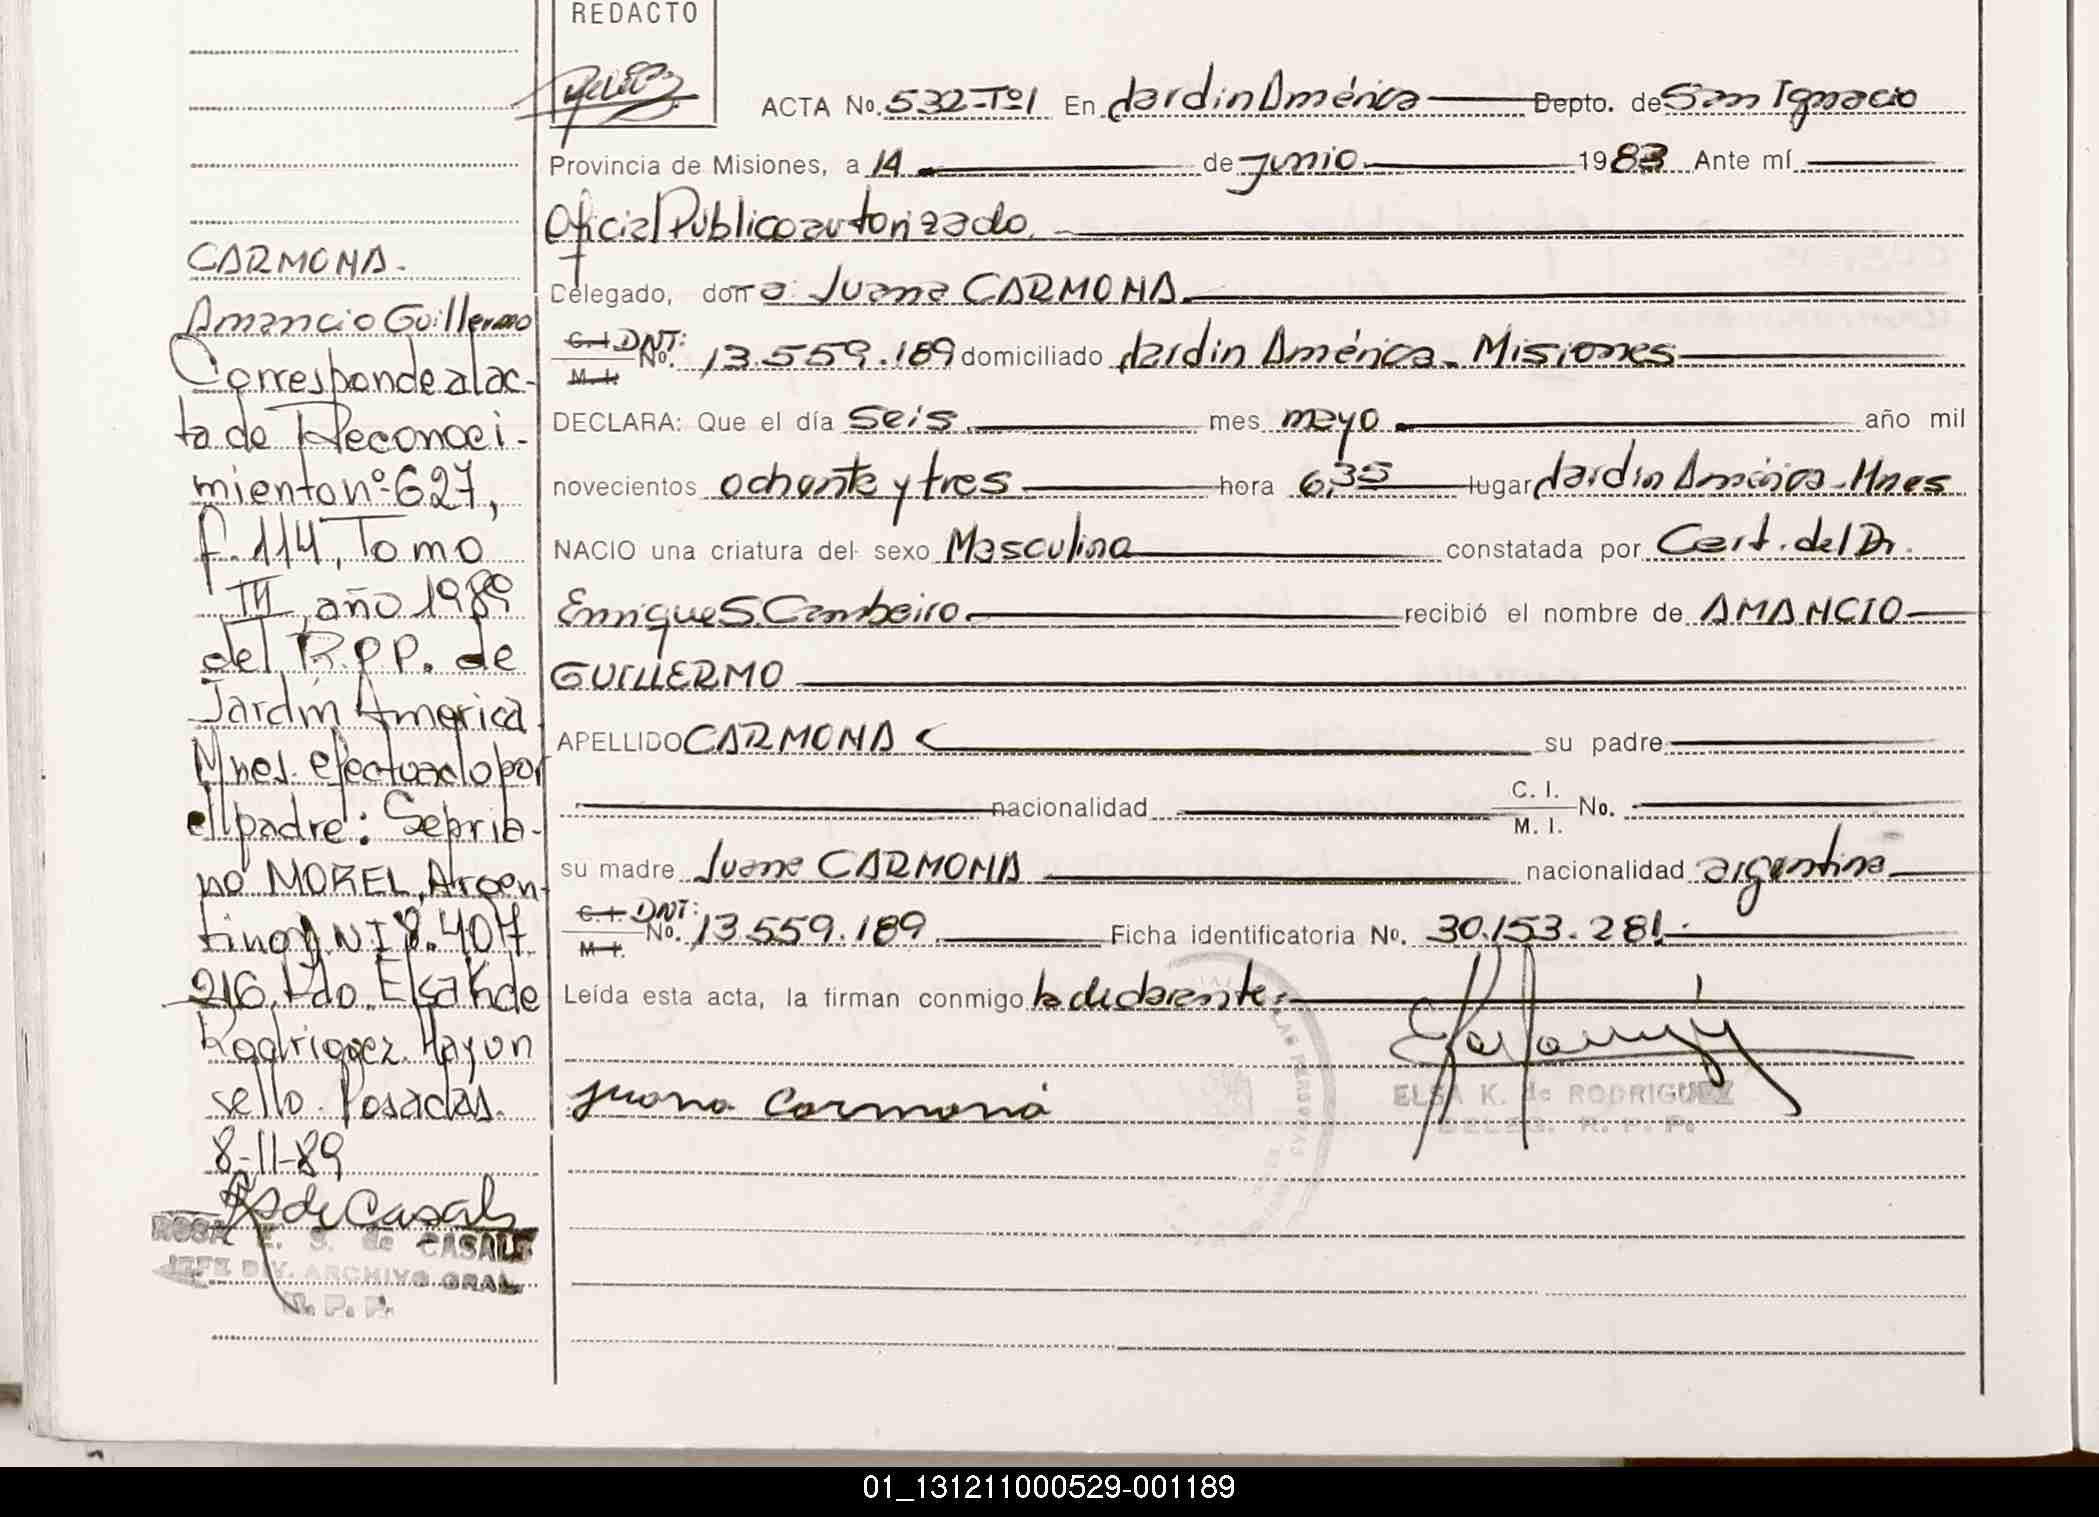 REDACTO
ACTA No. 532-Tº1 En Jardin América Depto. de San Ignacio
Provincia de Misiones, a 14 de junio 1983 Ante mí
Oficial Público autorizado
Delegado, don a Juana CARMONA
C.I. DNI: M.I. No. 13.559.189 domiciliado Jardin América - Misiones
DECLARA: Que el día seis mes mayo año mil
novecientos ochenta y tres hora 6,35 lugar Jardin América - Mnes
NACIO una criatura del sexo Masculino constatada por Cert. del Dr.
Enrique S. Cambeiro recibió el nombre de AMANCIO
GUILLERMO
APELLIDO CARMONA su padre
nacionalidad C. I. M. I. No.
su madre Juana CARMONA nacionalidad argentina
C.I. DNI: M.I. No. 13.559.189 Ficha identificatoria No. 30.153.281.-
Leída esta acta, la firman conmigo la declarante.
Juana Carmona
ELSA K. de RODRIGUEZ
DELEG. R. P. P.
CARMONA.
Amancio Guillermo
Corresponde al ac-
ta de Reconoci-
miento nº 627,
f. 114, Tomo
III, año 1989
del R.P.P. de
Jardín America
Mnes. efectuado por
el padre: Sepria-
no MOREL, Argen-
tino DNI 8.407.
216 Fdo. Elsa K de
Rodriguez. Hay un
sello. Posadas.
8-11-89
RS de Casals
ROSA E. S. de CASALS
JEFE DIV. ARCHIVO GRAL.
R. P. P.
01_131211000529-001189